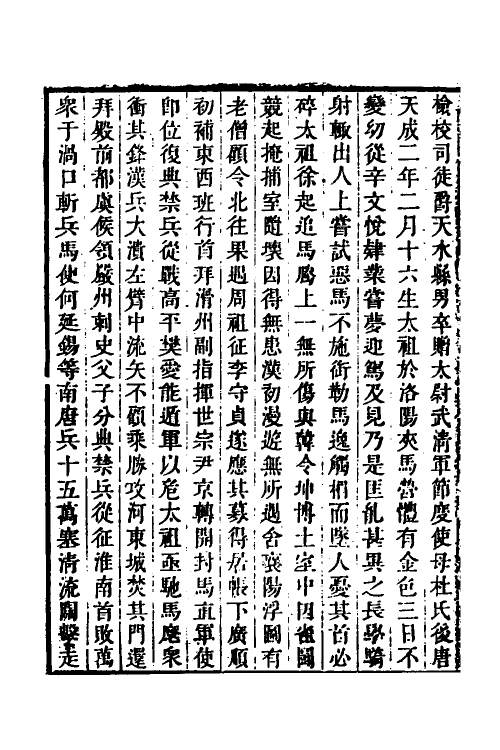 檢校司徒爵天水縣男卒贈太尉武清軍節度使母杜氏後唐
天成二年二月十六生太祖於洛陽夾馬營體有金色三日不
變幼從辛文悅肄業嘗夢迎駕及見乃是匡胤甚異之長學騎
射輒出人上嘗試惡馬不施銜勒馬逸觸楣而墜人憂其首必
碎太祖徐起追馬騰上一無所傷與韓令坤博土室中因雀鬬
競起掩捕室隨壞因得無患漢初漫遊無所遇舍襄陽浮圖有
老僧顧令北往果遇周祖征李守貞遂應其募得居帳下廣順
初補東西班行首拜滑州副指揮世宗尹京轉開封馬直軍使
即位復典禁兵從戰高平樊愛能遁軍以危太祖亟馳馬麾衆
衝其鋒漢兵大潰左臂中流矢不顧乘勝攻河東城焚其門還
拜殿前都虞候領嚴州刺史父子分典禁兵從征淮南首敗萬
衆于渦口斬兵馬使何延錫等南唐兵十五萬塞清流關擊走